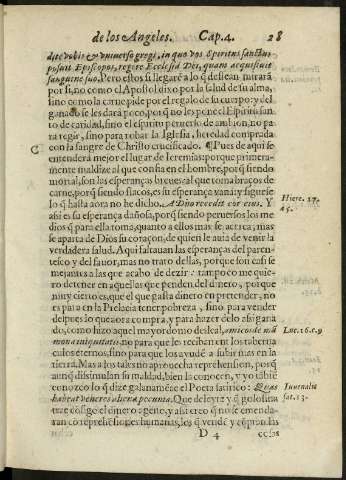 de los Angeles. Cap.4. 28
dite vobis & vniverso gregi, in quo vos Spiritus sanctus
posuit Episcopos, regere Ecclesiā Dei, quam acquisiuit
sanguine suo. Pero estos si llegarē a lo q̃ desean mirarā
por si, no como el Apostol dixo por la salud de su alma,
sino como la carne pide por el regalo de su cuerpo y del
ganado se les darà poco, por q̃ no les pone el Espiritu san
to de caridad, sino el spiritu peruerso de ambiciō, no pa
ra regir, sino para robar la Iglesia, heredad comprada
C con la sangre de Christo crucificado. ¶ Pues de aqui se
entenderà mejor el lugar de Ieremias: porque primera-
mente maldize al que confia en el Hombre, porq̃ siendo
mortal, son las esperanças breues: al que toma braços de
carne, porq̃ siendo flacos, es su esperança vana: y siguese
lo q̃ hasta aora no he dicho. A Dño recedit cor eius. Y
Hiere. 17.
assi es su esperança dañosa, porq̃ siendo peruersos los me
dios q̃ para ella toma, quanto a ellos mas se acerca, mas
se aparta de Dios su coraçon, de quien le auia de venir la
verdadera salud. Aqui faltauan las esperanças del paren-
tesco y del fauor, mas no trato dellas, porque son casi se
mejantes a las que acabo de dezir: tampoco me quie-
ro detener en aquellas que penden del dinero, porque
muy cierto es, que el que gasta dinero en pretender, no
es para en la Prelacia tener pobreza, sino para vender
despues lo que aora compra, y para hazer dello assi gana
do, como hizo aquel mayordomo desleal, amicos de mā
Luc. 16. c. 9
mona iniquitatis: no para que les reciban en los taberna
culos eternos, sino para que los ayudē a subir mas en la
tierra. Mas a los tales no aprouecha reprehension, porq̃
aunq̃ dissimulan su maldad, bien la conocen, y yo tābiē
conozco lo q̃ dize galanamēte el Poeta satirico: Quas
Iuuenalis
habeat veneres aliena pecunia. Que deleyte y q̃ golosina
sat. 13.
trae cōsigo el dinero ageno, y assi creo q̃ no se emenda-
ran cō reprehēsiones humanas, los q̃ vendē y cōpran las
D 4